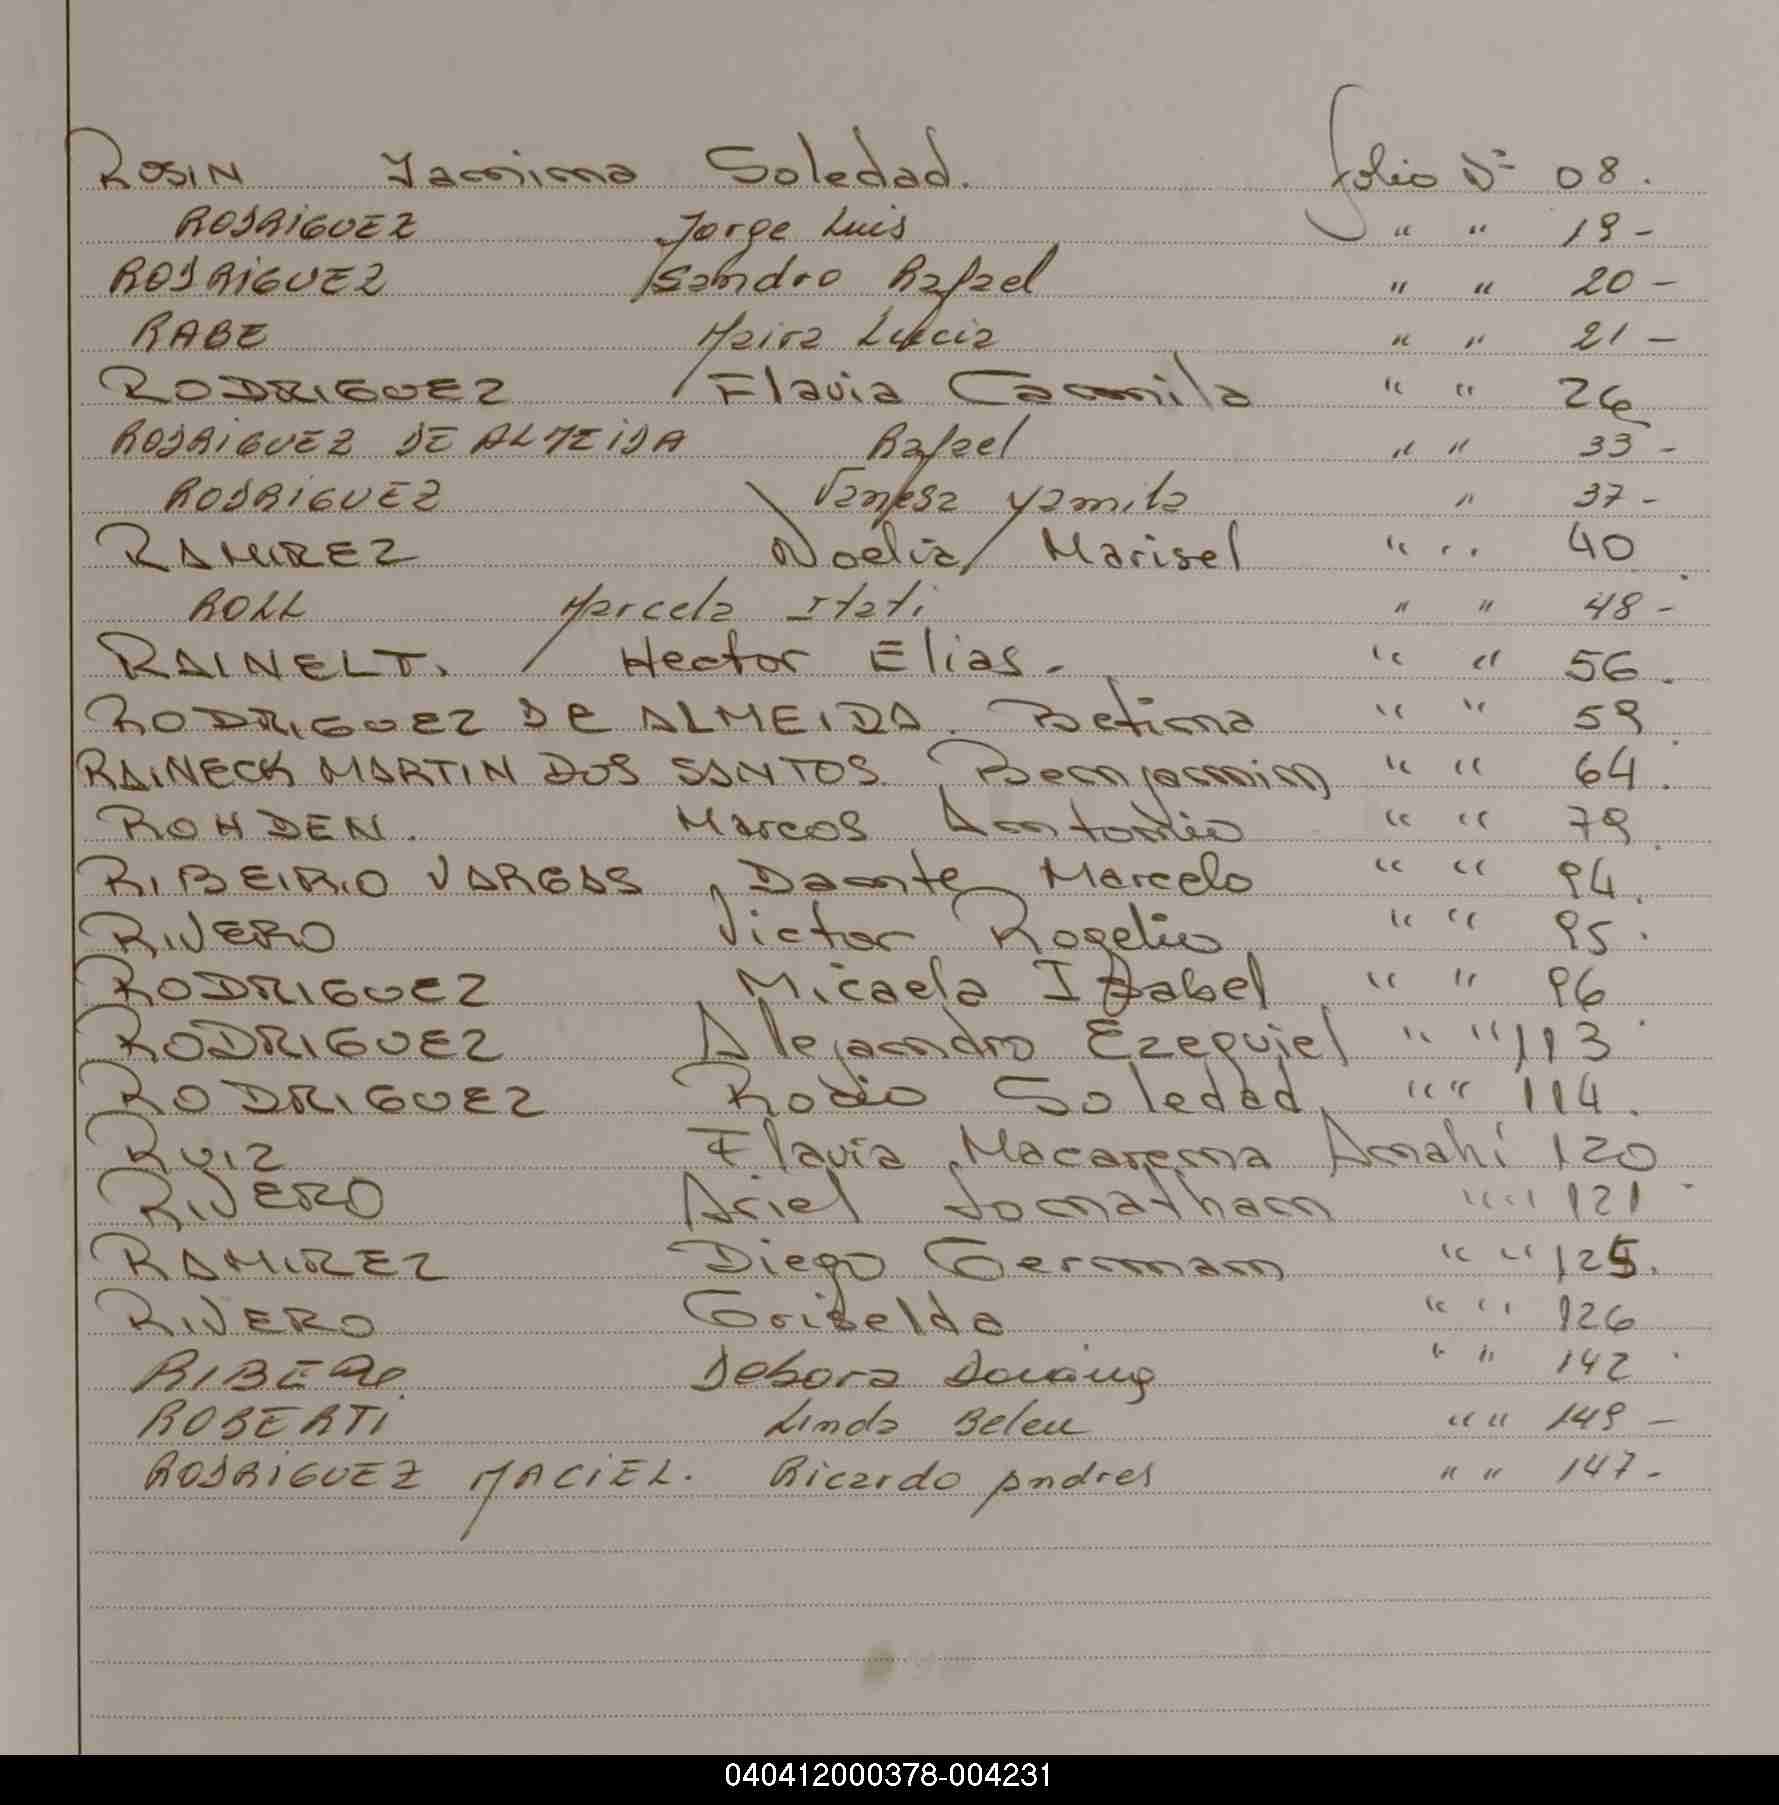 ROSIN Jamima Soledad. folio Nº 08.
RODRIGUEZ Jorge Luis " " 19 -
RODRIGUEZ Sandro Rafael " " 20 -
RABE Maira Lucia " " 21 -
RODRIGUEZ Flavia Camila " " 26
RODRIGUEZ DE ALMEIDA Rafael " " 33 -
RODRIGUEZ Vanesa Yamila " 37 -
RAMIREZ Noelia Marisel " " 40
ROLL Marcela Itati " " 48 -
RAINELT. Hector Elias - " " 56.
RODRIGUEZ De ALMEIDA. Betina " " 59
RAINECK MARTIN DOS SANTOS Benjamin " " 64.
ROHDEN. Marcos Antonio " " 79
RIBEIRO VARGAS Dante Marcelo " " 94.
RIVERO Victor Rogelio " " 95.
RODRIGUEZ Micaela Izabel " " 96
RODRIGUEZ Alejandro Ezequiel " " 113
RODRIGUEZ Rocio Soledad " " 114.
RUIZ Flavia Macarena Anahi 120
RIVERO Ariel Jonathan " " 121
RAMIREZ Diego German " " 125.
RIVERO Griselda " " 126
RIBERO Debora " " 142
ROBERTI Linda Belen " " 149 -
RODRIGUEZ MACIEL. Ricardo Andres " " 147 -
040412000378-004231